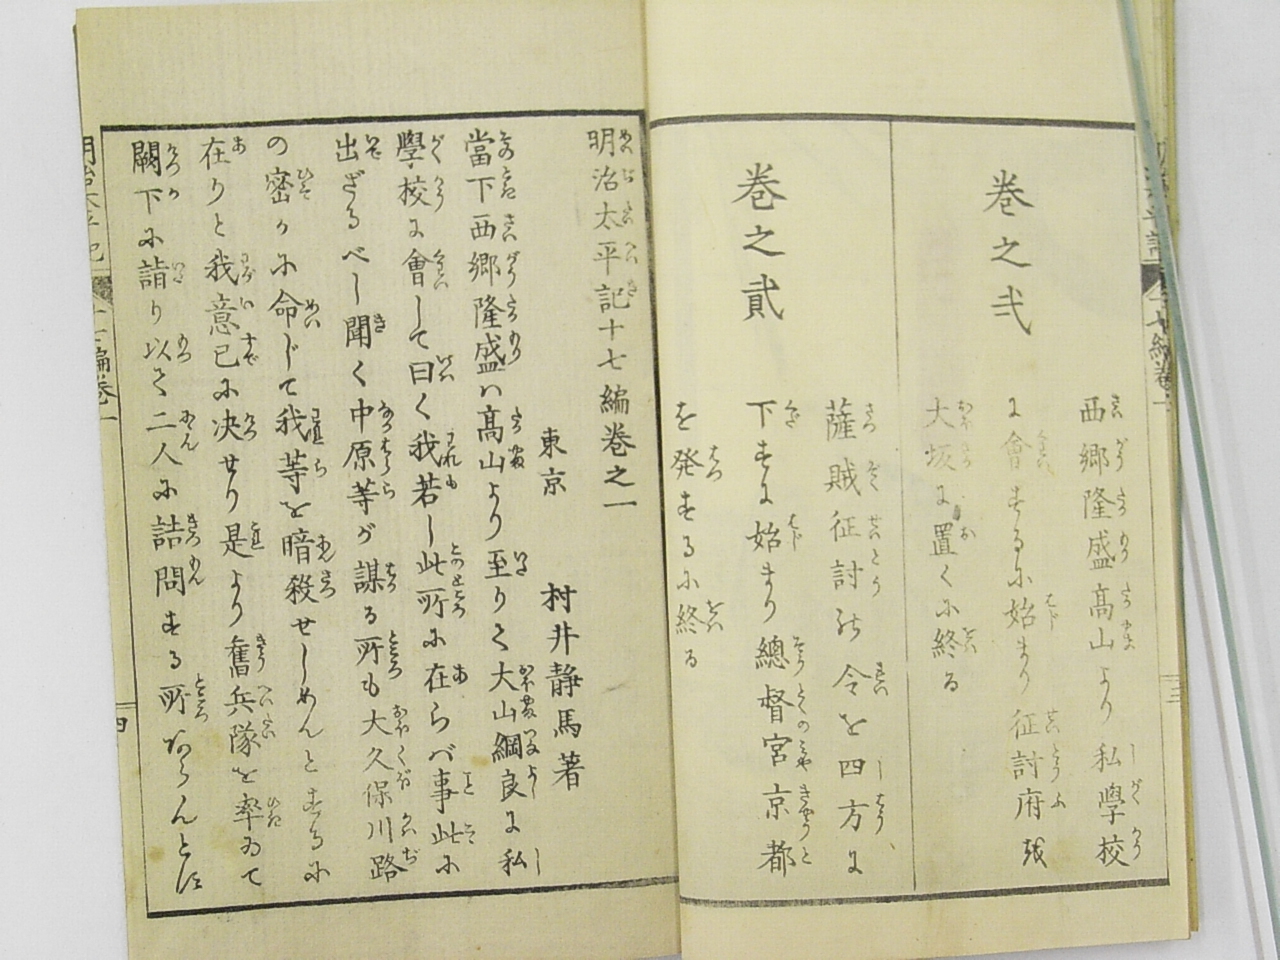 巻之弌
西郷隆盛髙山より私學校
に會するに始まり征討府を
大坂に置くに終る
巻之貳
薩賊征討の令を四方に
下すに始まり總督宮京都
を発するに終る
三
明治太平記十七編巻之一
東京 村井静馬著
當下西郷隆盛ハ髙山より至りて大山綱良に私
學校に會して曰く我若し此所に在らバ事此に
出ざるべし聞く中原等が謀る所も大久保川路
の密かに命じて我等を暗殺せしめんとするに
在りと我意已に决せり是より奮兵隊を率ゐて
闕下に詣り以て二人に詰問する所あらんとす
明治太平記 十七編巻一
四